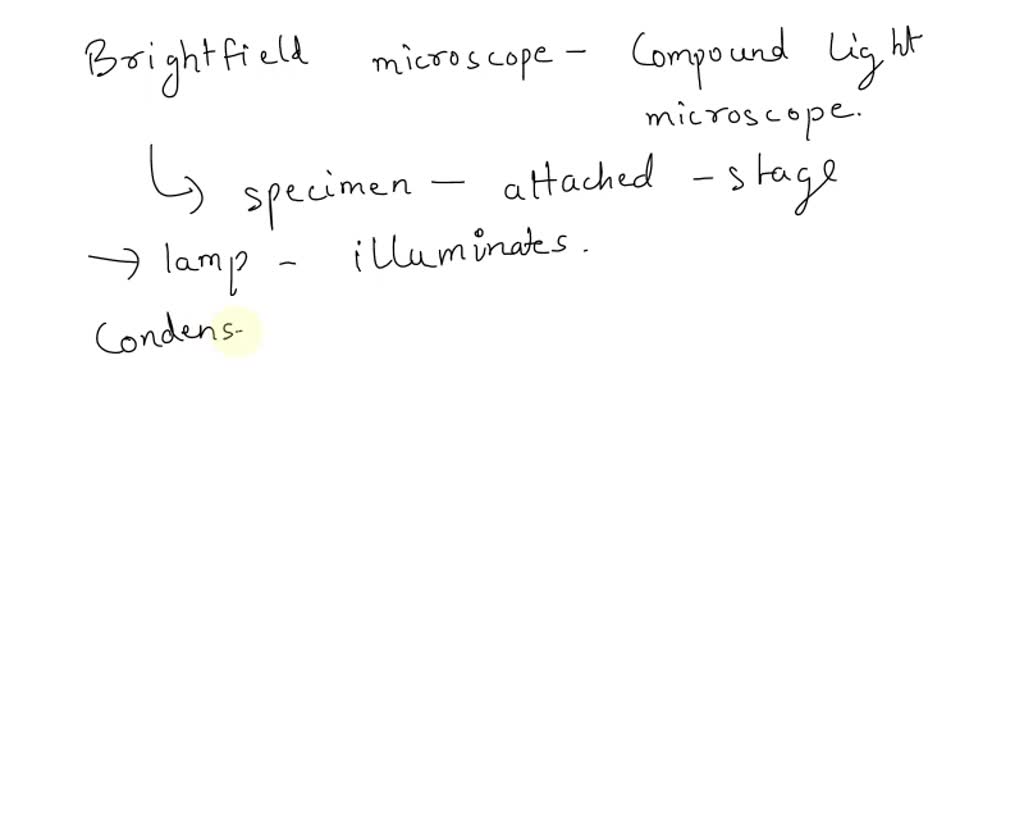 Brightfield microscope - Compound light
microscope.
↳ specimen - attached - stage
→ lamp - illuminates.
Condens-